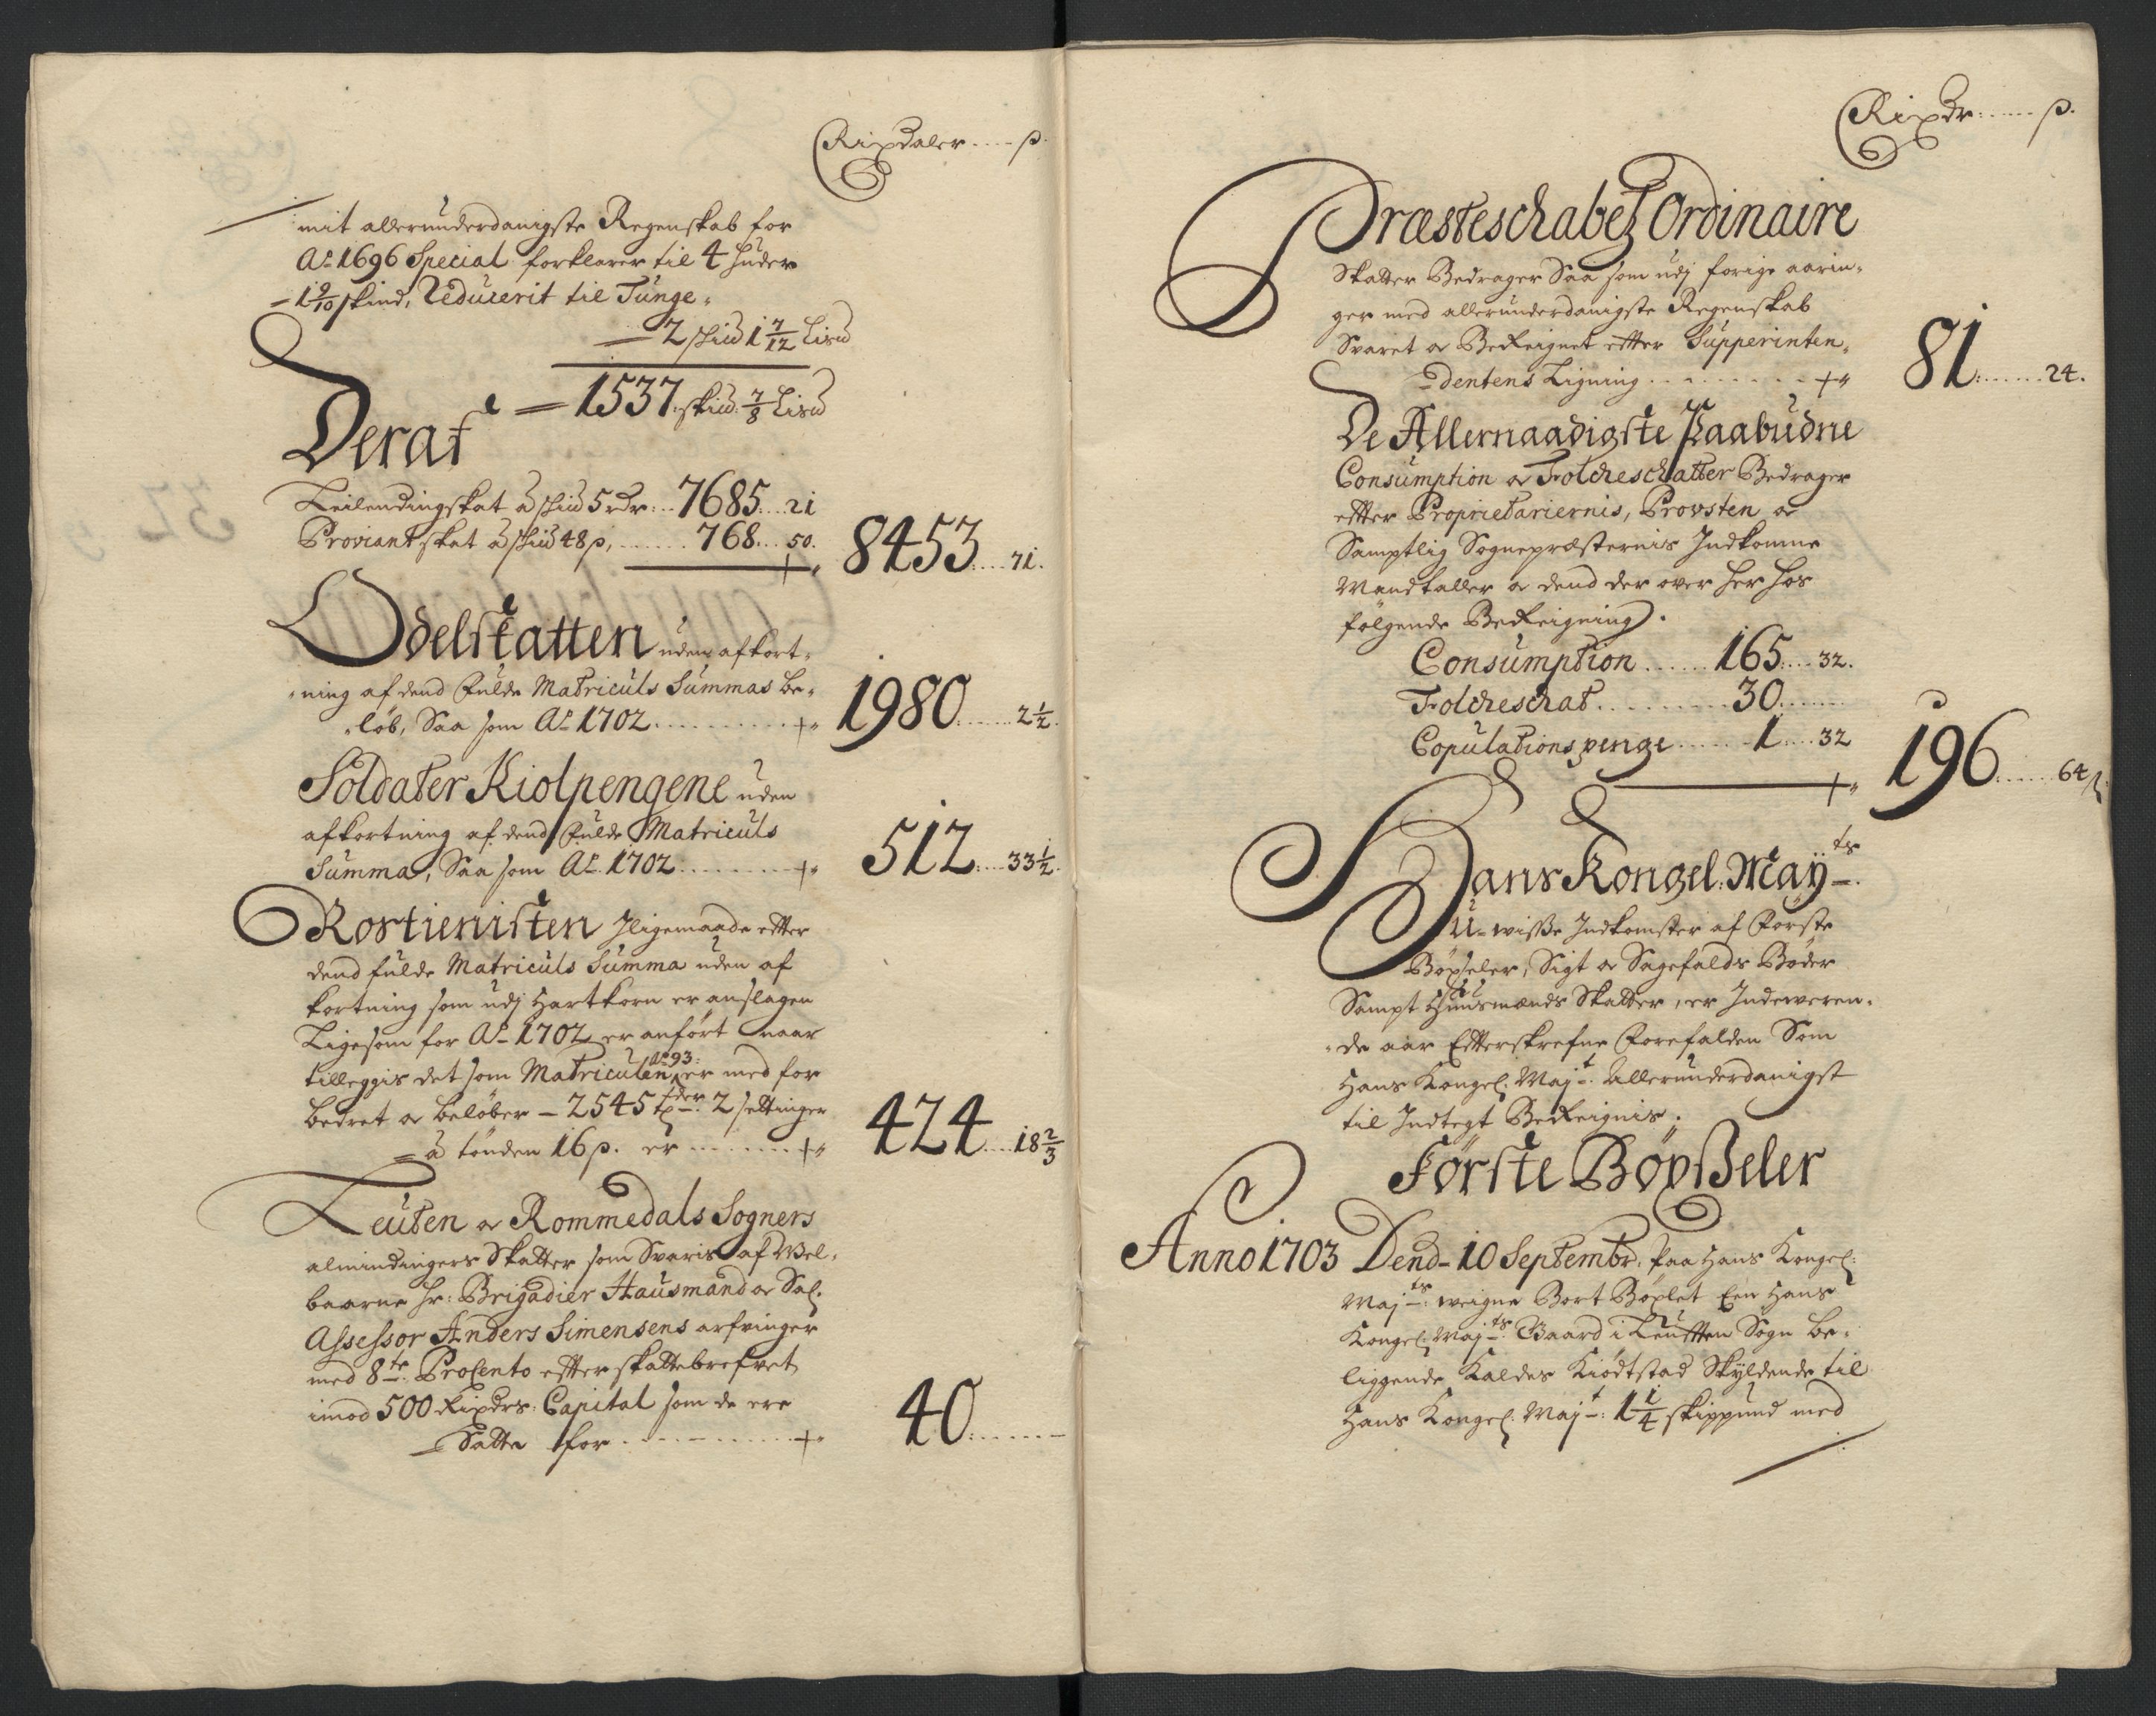 Rixdaler .... ß.
mit allerunderdanigste Regenskab for
Ao 1696 Special forklarer til 4 Huder
- 1 9/10 skind, Reducerit til Tunge
2 skiud 1 7/12 Lisud
= 1537. skiud. 7/8 Lisud
Deraf
Leilendingskat à skiud 5 rdr: .. 7685 .. 21
Proviantskat à skiud 48 ß, ...... 768 ... 50.
8453 .... 71.
Odelskatten uden afkort-
ning af dend fulde Matriculs Summas be-
løb, Saa som Ao 1702 ..........
1980 ...... 2 1/2.
Soldater Kiolpengene uden
afkortning af dend fulde Matriculs
Summa, Saa som Ao. 1702 .........
512 .... 33 1/2.
Rostienisten Iligemaade efter
dend fulde Matriculs Summa uden af
kortning som udj Hartkorn er anslagen
Ligesom for Ao 1702 er anført naar
tilleggis det som Matriculen Ao 93: er med for
bedret og beløber - 2545 tder: 2 settinger
= à tønden 16 ß. er .......
424 .... 18 2/3
Leuten og Rommedals Sogners
almindingers Skatter som Svaris af Wel-
baarne Hr: Brigadier Hausmand og Sal.
Assessor Anders Simensens arfvinger
med 8te: ProCento efter skattebrefvet
imod 500 Rixdrs: Capital som de ere
Satte for ............
40 .......
Rixdr ...... ß.
Præsteschabetz Ordinaire
Skatter Bedrager Saa som udj forige aarin-
ger med allerunderdanigste Regenskab
Svaret og Bereignet efter Supperinten-
dentens Ligning ..........
81 ...... 24.
De Allernaadigste Paabudne
Consumption og Folckeschatter Bedrager
efter Proprietariernis, Provsten og
Samptlig Sognepræsternis Indkomne
Mandtaller og dend der over her hos
følgende Bereigning.
Consumption ...... 165 .... 32.
Folckeschat ......... 30 ......
Copulations penge ...... 1 .... 32
196 ..... 64 ß
Hans Kongel: Mayts.
U-wisse Indkomster af Første
Bøxseler, Sigt og Sagefalds Bøder
Sampt Huusmænds Skatter, er Indeweren-
de aar Efterskrefne forefalden Som
Hans Kongel. Majt. Allerunderdanigst
til Indtegt Bereignis.
Første Bøxseler
Anno 1703 Dend- 10 Septembr. paa Hans Kongel:
Majts: weigne Bort Bøxlet Een Hans
Kongel: Majts: Gaard i Leutten Sogn be-
liggende Kaldes Kiødtstad Skyldende til
Hans Kongel. Majt: 1 1/4 skippund med